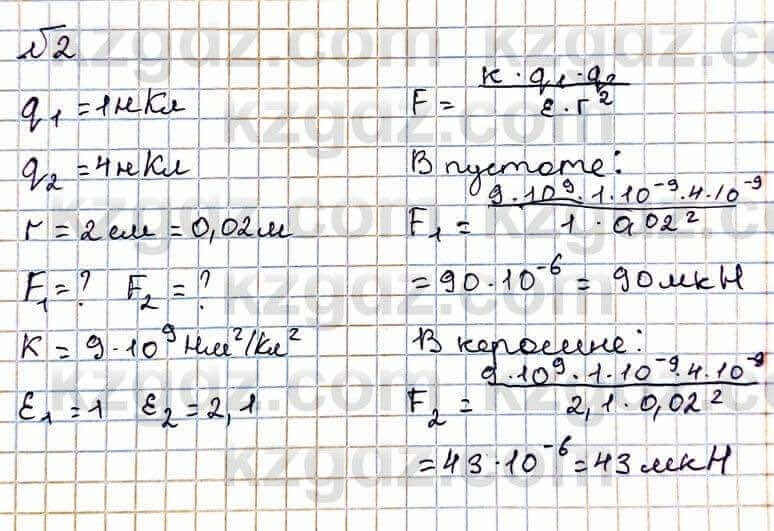 №2
q₁ = 1нКл
q₂ = 4нКл
r = 2см = 0,02м
F₁ = ? F₂ = ?
K = 9·10⁹ Нм²/Кл²
ε₁ = 1 ε₂ = 2,1
F = к·q₁·q₂ / ε·r²
В пустоте:
F₁ = 9·10⁹·1·10⁻⁹·4·10⁻⁹ / 1·0,02²
= 90·10⁻⁶ = 90мкН
В керосине:
F₂ = 9·10⁹·1·10⁻⁹·4·10⁻⁹ / 2,1·0,02²
= 43·10⁻⁶ = 43мкН
kzgdz.com